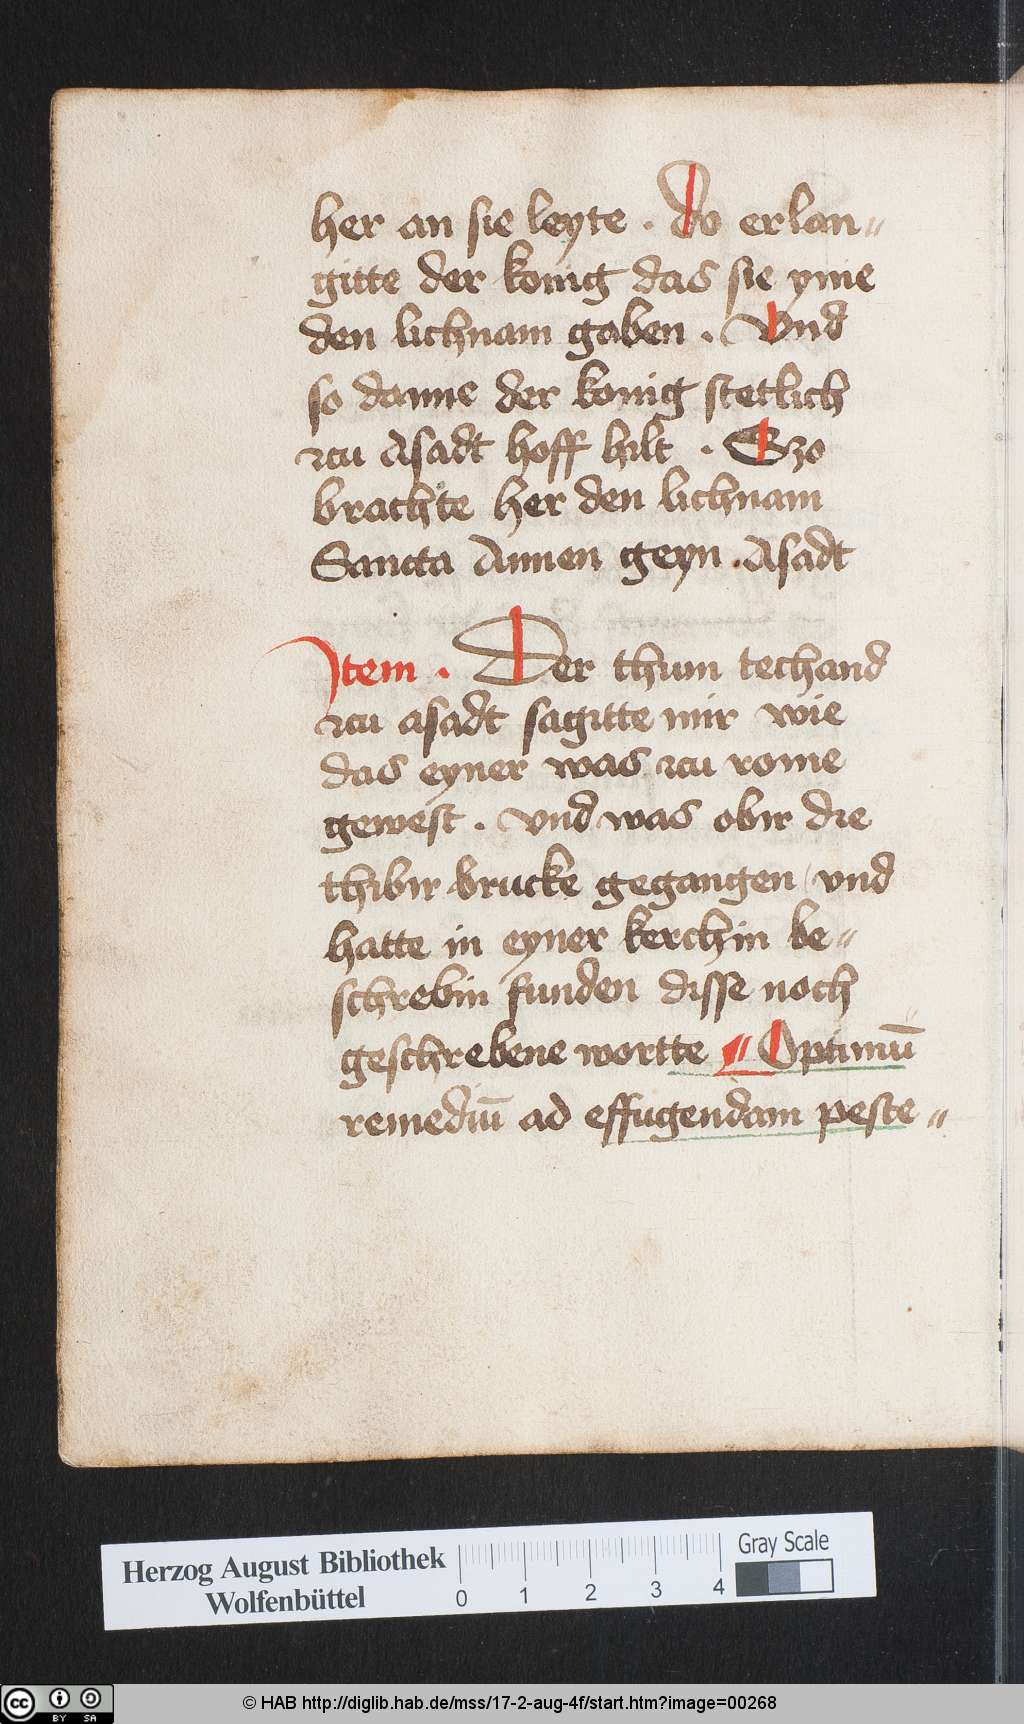 her an sie leyte . do erlan„
gitte der konig das sie yme
den lichnam goben . Vnd
so danne der konig stetlich
zcu Asadt hoff hilt . Szo
brachte her den lichnam
Sancta Annen geyn . Asadt
Item . Der thum techand
zcu asadt sagitte mir wie
das eyner was zcu rome
gewest . vnd was obir die
thibir brucke gegangen vnd
hatte in eyner kerchin be„
schrebin funden disse noch
geschrebene wortte „ Optimū
remediū ad effugendam peste„
Herzog August Bibliothek
Wolfenbüttel
0 1 2 3 4
Gray Scale
cc BY SA
© HAB http://diglib.hab.de/mss/17-2-aug-4f/start.htm?image=00268